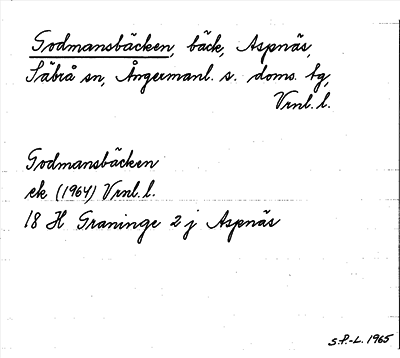 Godmansbäcken, bäck, Aspnäs,
Säbrå sn, Ångermanl. s. doms. sg,
Vrnl. l.
Godmansbäcken
ek (1964) Vrnl. l.
18 H Graninge 2 j Aspnäs
S.P.-L. 1965